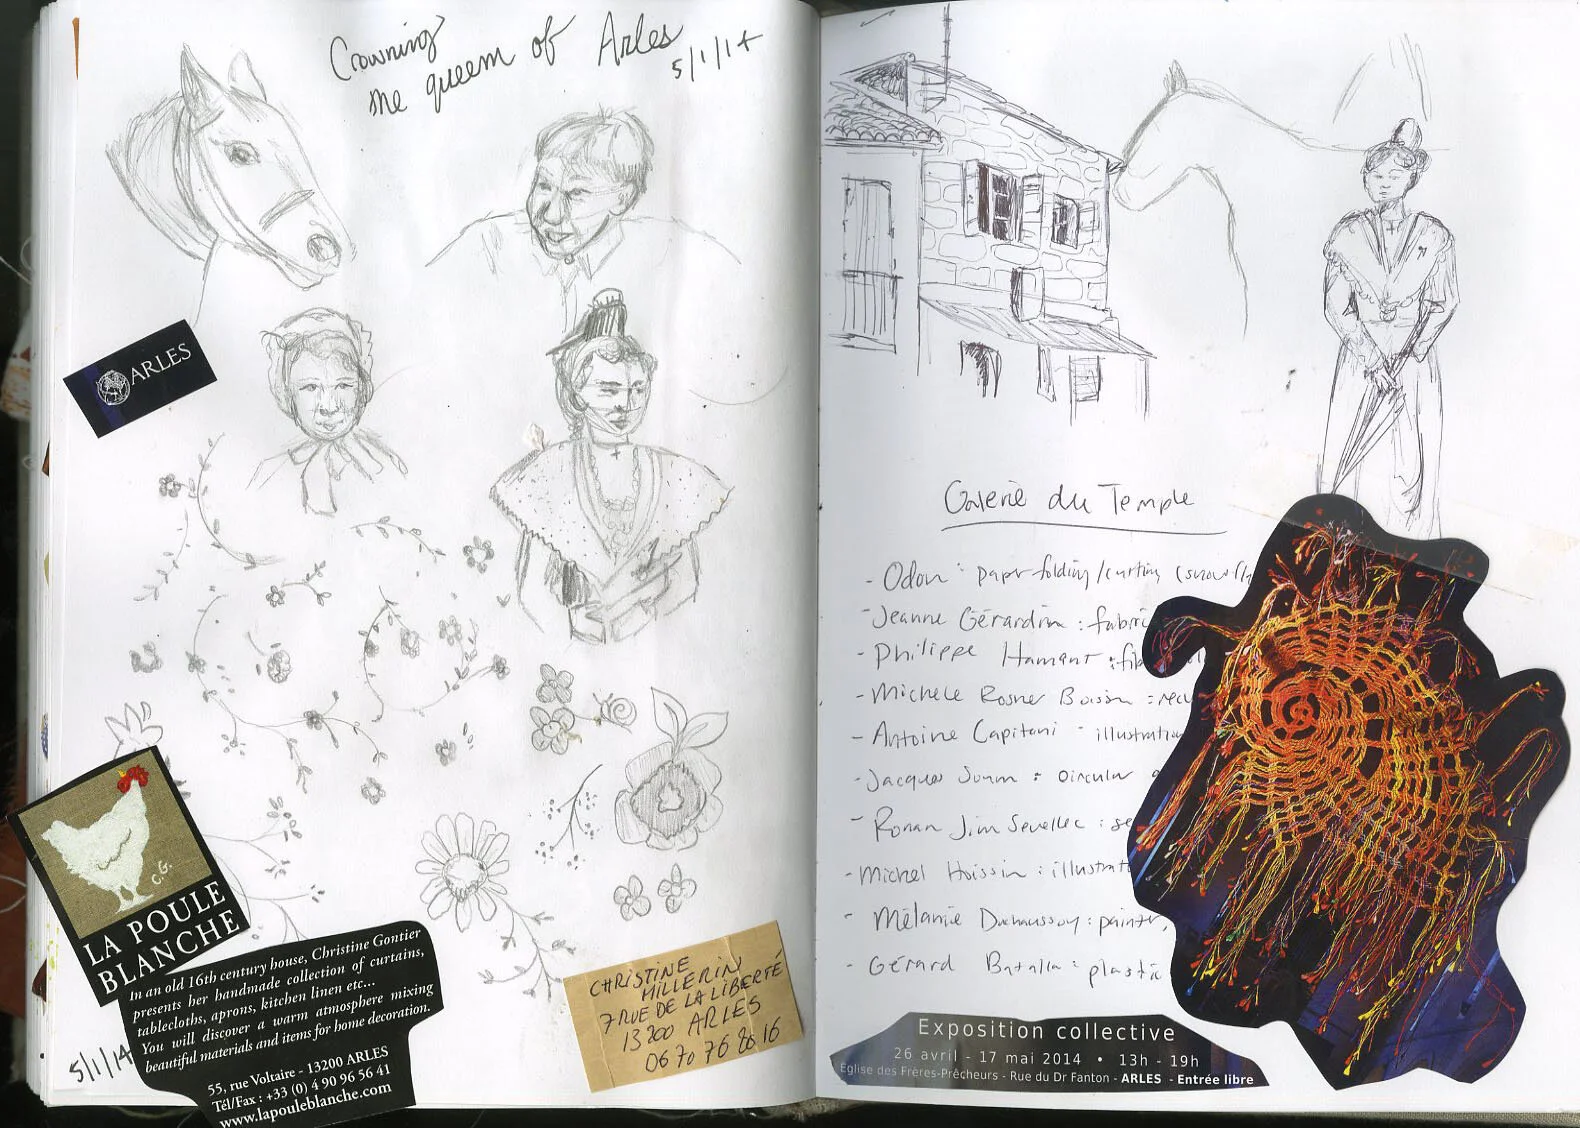 Crowning
the queen of Arles
5/1/14
ARLES
C.G.
LA POULE
BLANCHE
In an old 16th century house, Christine Gontier
presents her handmade collection of curtains,
tablecloths, aprons, kitchen linen etc...
You will discover a warm atmosphere mixing
beautiful materials and items for home decoration.
55, rue Voltaire - 13200 ARLES
Tél/Fax : +33 (0) 4 90 96 56 41
www.lapouleblanche.com
5/1/14
CHRISTINE
MILLERIN
7 RUE DE LA LIBERTÉ
13200 ARLES
06 70 76 86 16
Galerie du Temple
- Odon : paper folding/cutting
- Jeanne Gérardin : fabric
- Philippe Hamant :
- Michèle Rosner Boissin :
- Antoine Capitani - illustration
- Jacques : circular
- Ronan Jim Sevellec :
- Michel Hoissin :
- Mélanie Duchaussoy : painter,
- Gérard Batalla : plastic
Exposition collective
26 avril - 17 mai 2014 • 13h - 19h
Église des Frères-Prêcheurs - Rue du Dr Fanton - ARLES - Entrée libre